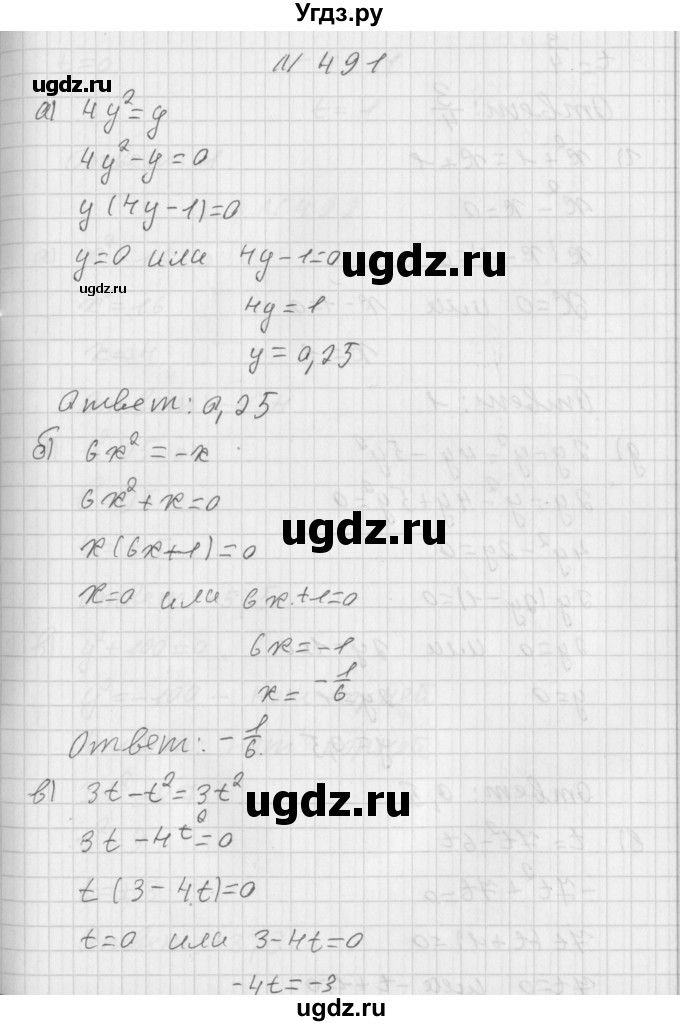 Угдз.ру
N 491
ugdz.ru
а) 4y²=y
4y²-y=0
y(4y-1)=0
y=0 или 4y-1=0
ugdz.ru
ugdz.ru
4y=1
y=0,25
Ответ: 0,25
б) 6x²=-x
6x²+x=0
ugdz.ru
x(6x+1)=0
x=0 или 6x+1=0
6x=-1
x=-1/6
Ответ: -1/6.
в) 3t-t²=3t²
ugdz.ru
3t-4t²=0
t(3-4t)=0
t=0 или 3-4t=0
-4t=-3
ugdz.ru